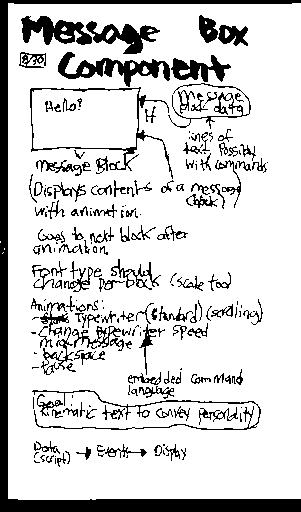 Message Box
Component
8/30
Hello?
Message
block data
lines of
text. Possibly
with commands
Message Block
(Displays contents of a message
block)
with animation.
Goes to next block after
animation.
Font type should
change per-block (scale too)
Animations:
- Typewriter (standard) (scrolling)
- change typewriter speed
mid-message
- backspace
- pause
embedded command
language
Goal:
Kinematic text to convey personality
Data
(script) → Events → Display